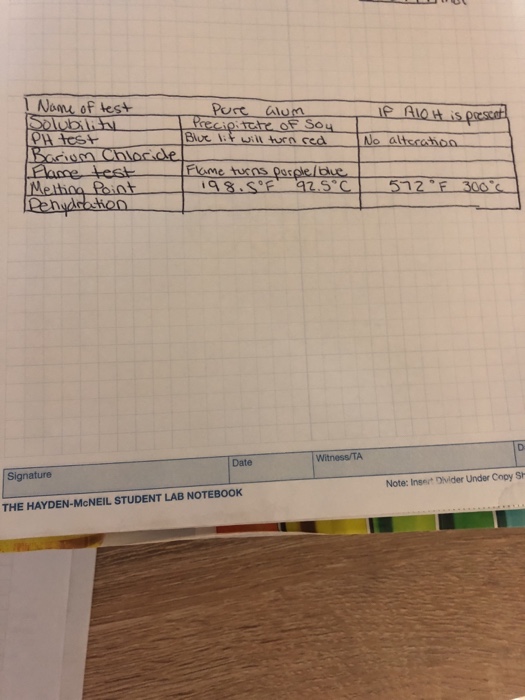 Name of test Pure alum IF AlOH is present
Solubility Precipitate of SO4
PH test Blue lit will turn red No alteration
Barium Chloride
Flame test Flame turns purple/blue
Melting Point 198.5°F 92.5°C 572°F 300°C
Dehydration
Signature Date Witness/TA
THE HAYDEN-McNEIL STUDENT LAB NOTEBOOK Note: Insert Divider Under Copy